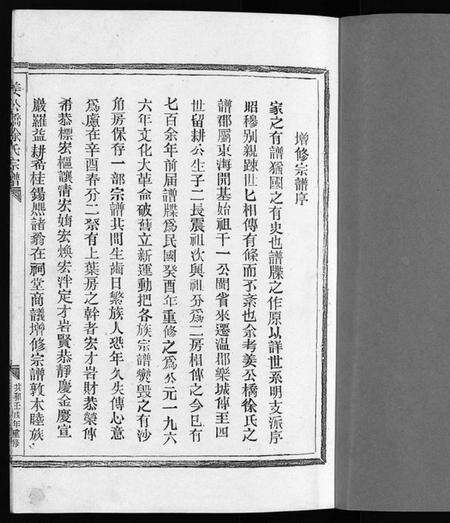 增修宗譜序
家之有譜猶國之有史也譜牒之作原以詳世系明支派序
昭穆別親疎世匕相傳有條而不紊也余考姜公橋徐氏之
譜郡屬東海開基始祖干一公閩省來遷温郡樂城傳至四
世留耕公生子二長震祖次興祖分為二房相傳之今已有
七百余年前届譜牒為民國癸酉年重修之為公元一九六
六年文化大革命破舊立新運動把各族宗譜焚毁之有沙
角房保存一部宗譜其間生齒日繁族人恐年久失傳心意
為慮在辛酉春分二祭有上葉房之幹者宏才岩財恭葉傳
希恭標宏樞讓清宏嬌宏煥宏泮定才岩賢恭靜慶金慶宣
嚴羅益耕帝桂錫熙諸翁在祠堂商議增修宗譜敦本睦族
姜公橋徐氏宗譜
共和壬戌年重修